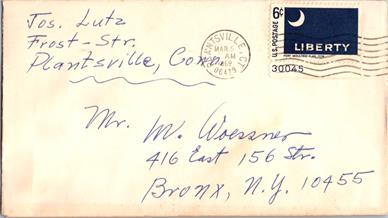 Jos. Lutz
Frost-Str.
Plantsville, Conn.
PLANTSVILLE, CT.
MAR 5
AM
1969
06479
6¢
U.S. POSTAGE
LIBERTY
FORT MOULTRIE FLAG, 1776
30045
Mr. M. Woessner
416 East 156 Str.
Bronx, N.Y. 10455